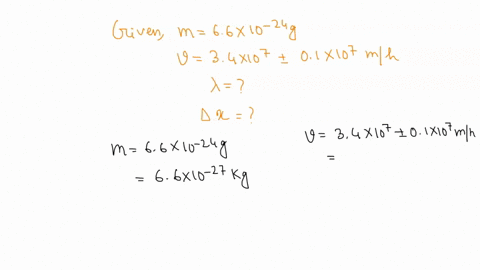 Given, m = 6.6×10⁻²⁴g
v = 3.4×10⁷ ± 0.1×10⁷ m/h
λ = ?
Δx = ?
m = 6.6×10⁻²⁴g
= 6.6×10⁻²⁷ Kg
v = 3.4×10⁷ ± 0.1×10⁷ m/h
=